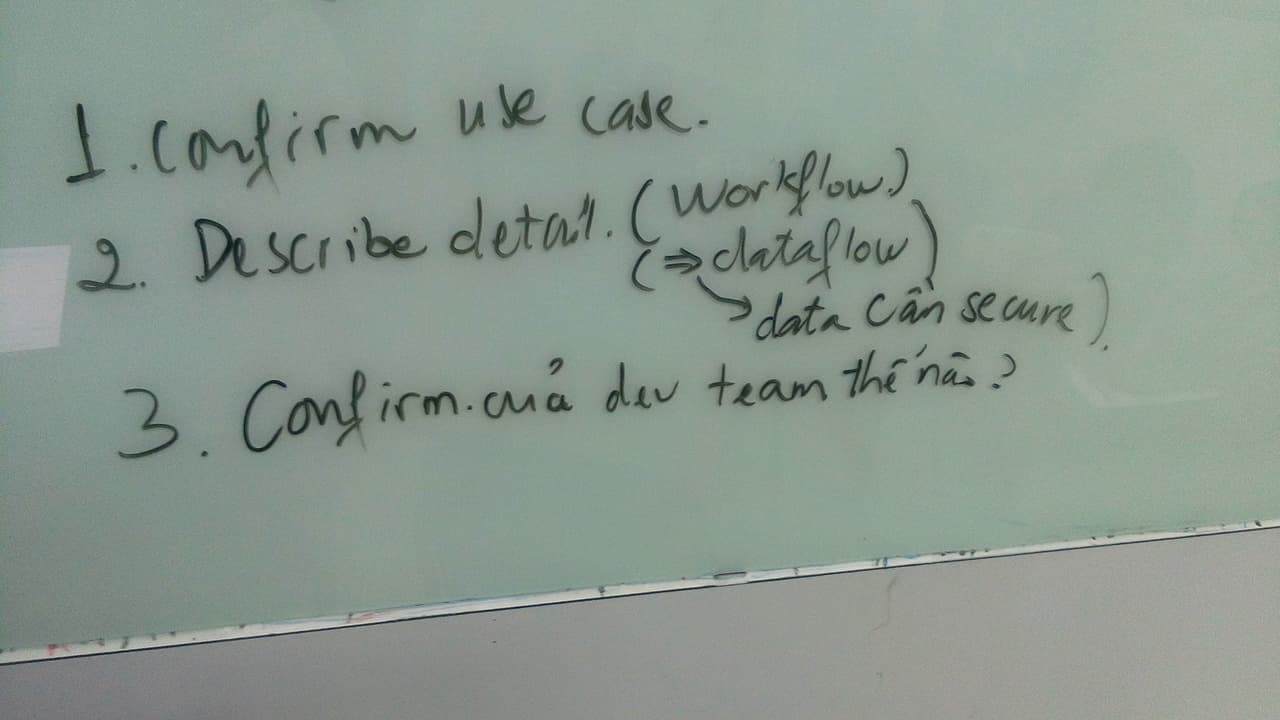 1. Confirm use case.
2. Describe detail. (Workflow.)
(⇒ dataflow)
↳ data cần secure).
3. Confirm. của dev team thế nào?